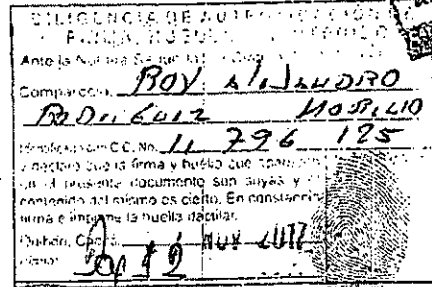 DILIGENCIA DE AUTENTICACIÓN DE
FIRMA, HUELLA Y CONTENIDO
Ante la Notaria Segunda
Compareció ROY ALEJANDRO
RODRIGUEZ
Identificado con C.C. No. 11 796 125
y declaró que la firma y huella que aparecen
en el presente documento son suyas y el
contenido del mismo es cierto. En constancia
firma e imprime la huella dactilar.
Quibdó, Chocó, NOV 2017